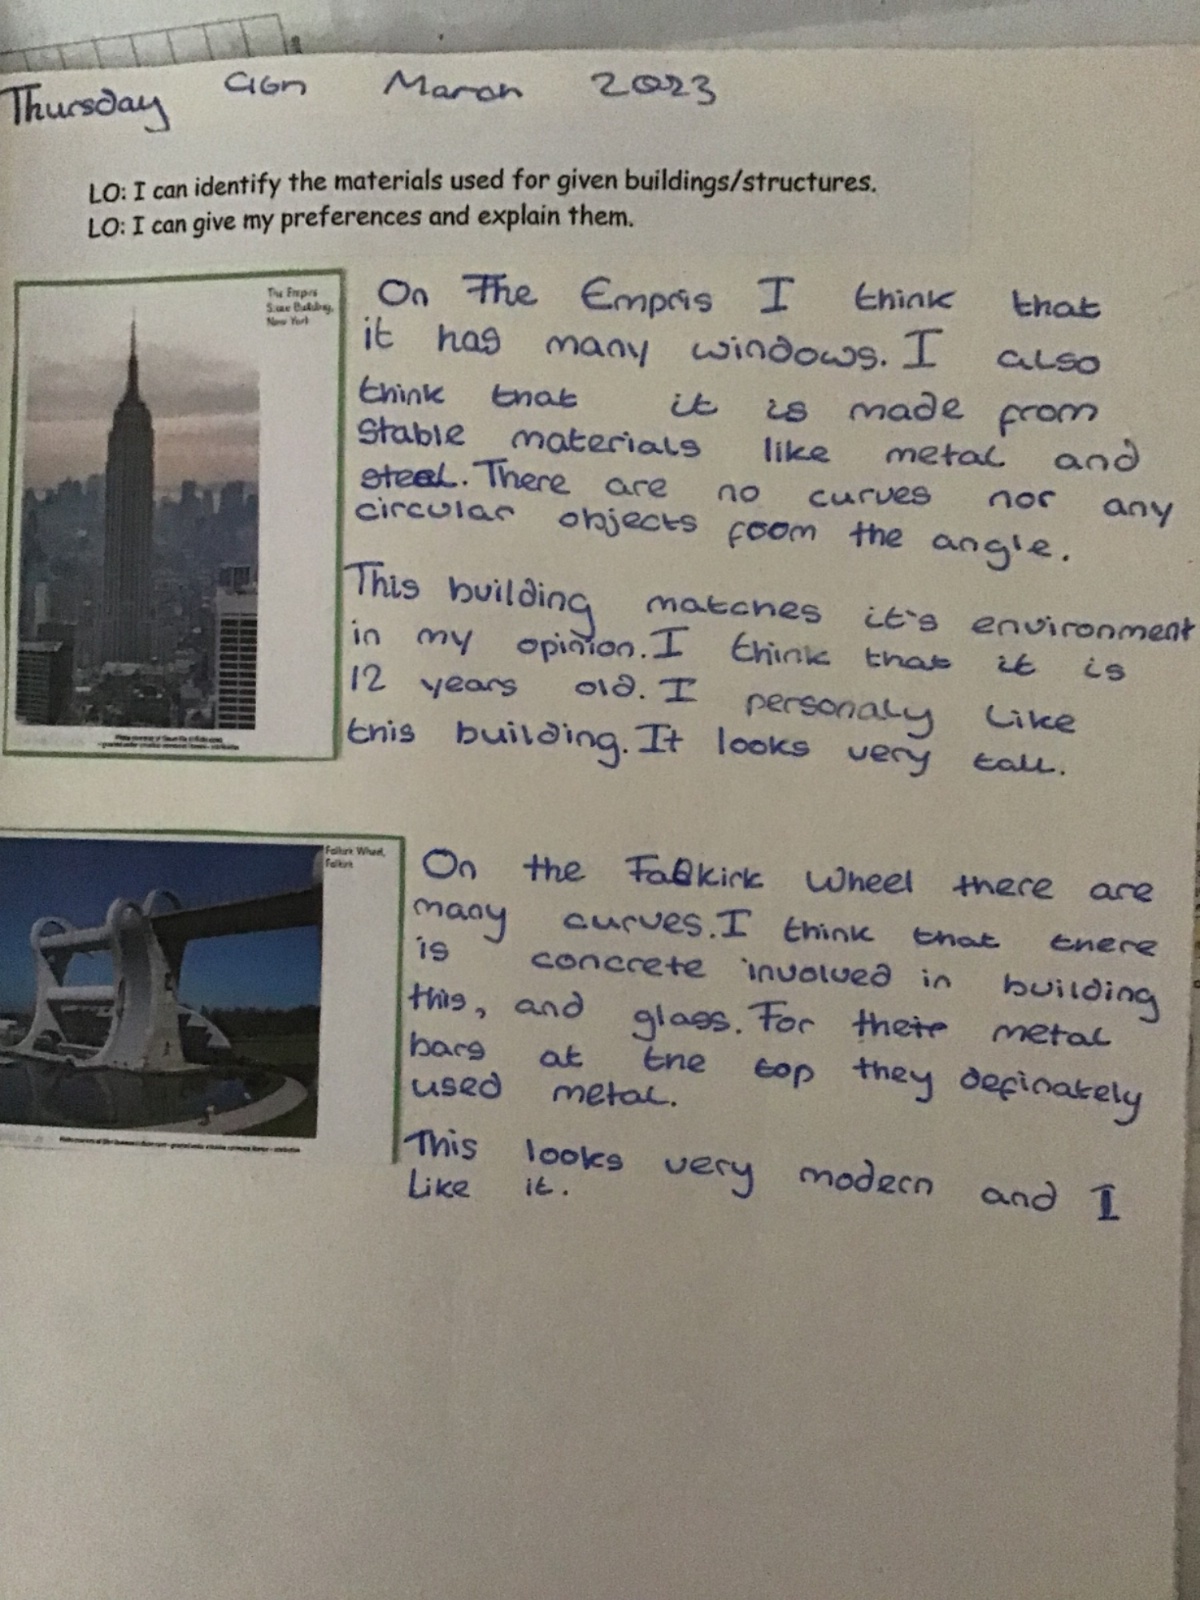 Thursday 9th March 2023
LO: I can identify the materials used for given buildings/structures.
LO: I can give my preferences and explain them.
The Empire
State Building,
New York
On The Empris I think that
it has many windows. I also
think that it is made from
stable materials like metal and
steel. There are no curves nor any
circular objects foom the angle.
This building matches it's environment
in my opinion. I think that it is
12 years old. I personaly like
this building. It looks very tall.
Falkirk Wheel,
Falkirk
On the Falkirk Wheel there are
many curves. I think that there
is concrete involved in building
this, and glass. For their metal
bars at the top they definately
used metal.
This looks very modern and I
like it.